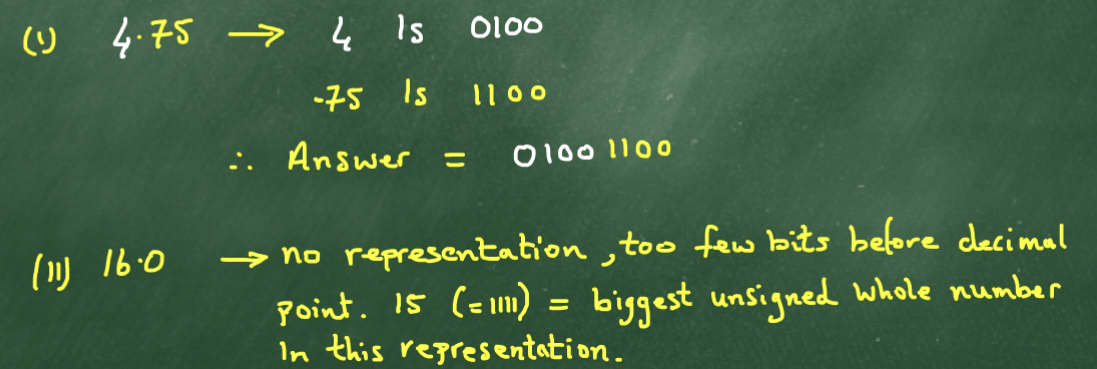 (i) 4.75 → 4 is 0100
.75 is 1100
∴ Answer = 01001100
(ii) 16.0 → no representation, too few bits before decimal
point. 15 (=1111) = biggest unsigned whole number
in this representation.